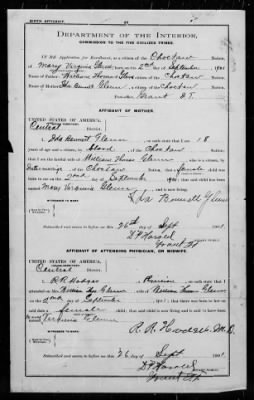 BIRTH AFFIDAVIT.
DEPARTMENT OF THE INTERIOR,
COMMISSION TO THE FIVE CIVILIZED TRIBES.
IN RE Application for Enrollment, as a citizen of the Choctaw Nation,
of Mary Virginia Glenn, born on the 2nd day of September, 190
Name of Father: William Thomas Glenn a citizen of the Choctaw Nation.
Name of Mother: Ida Bennett Glenn a citizen of the Choctaw Nation.
Postoffice Grant I.T.
AFFIDAVIT OF MOTHER.
UNITED STATES OF AMERICA,
Central District.
I, Ida Bennett Glenn, on oath state that I am 18
years of age and a citizen by blood, of the Choctaw Nation;
that I am the lawful wife of William Thomas Glenn, who is a citizen, by
of the Choctaw Nation; that a female child was
born to me on 2nd day of September, 190 ; that said child has been
named Mary Virginia Glenn, and is now living.
Ida Bennett Glenn
WITNESSES TO MARK:
Subscribed and sworn to before me this 26th day of Sept 190
D.F. Harold
Grant I.T.
AFFIDAVIT OF ATTENDING PHYSICIAN, OR MIDWIFE.
UNITED STATES OF AMERICA,
Central District.
I, R.R. Hodges, a Physician, on oath state that I
attended on Mrs. Glenn, wife of William Thomas Glenn
on the 2nd day of September, 190 ; that there was born to her on said
date a female child; that said child is now living and is said to have been
named Mary Virginia Glenn
R. R. Hodges M.D.
WITNESSES TO MARK:
Subscribed and sworn to before me this 26 day of Sept 190
D.F. Harold
Grant I.T.